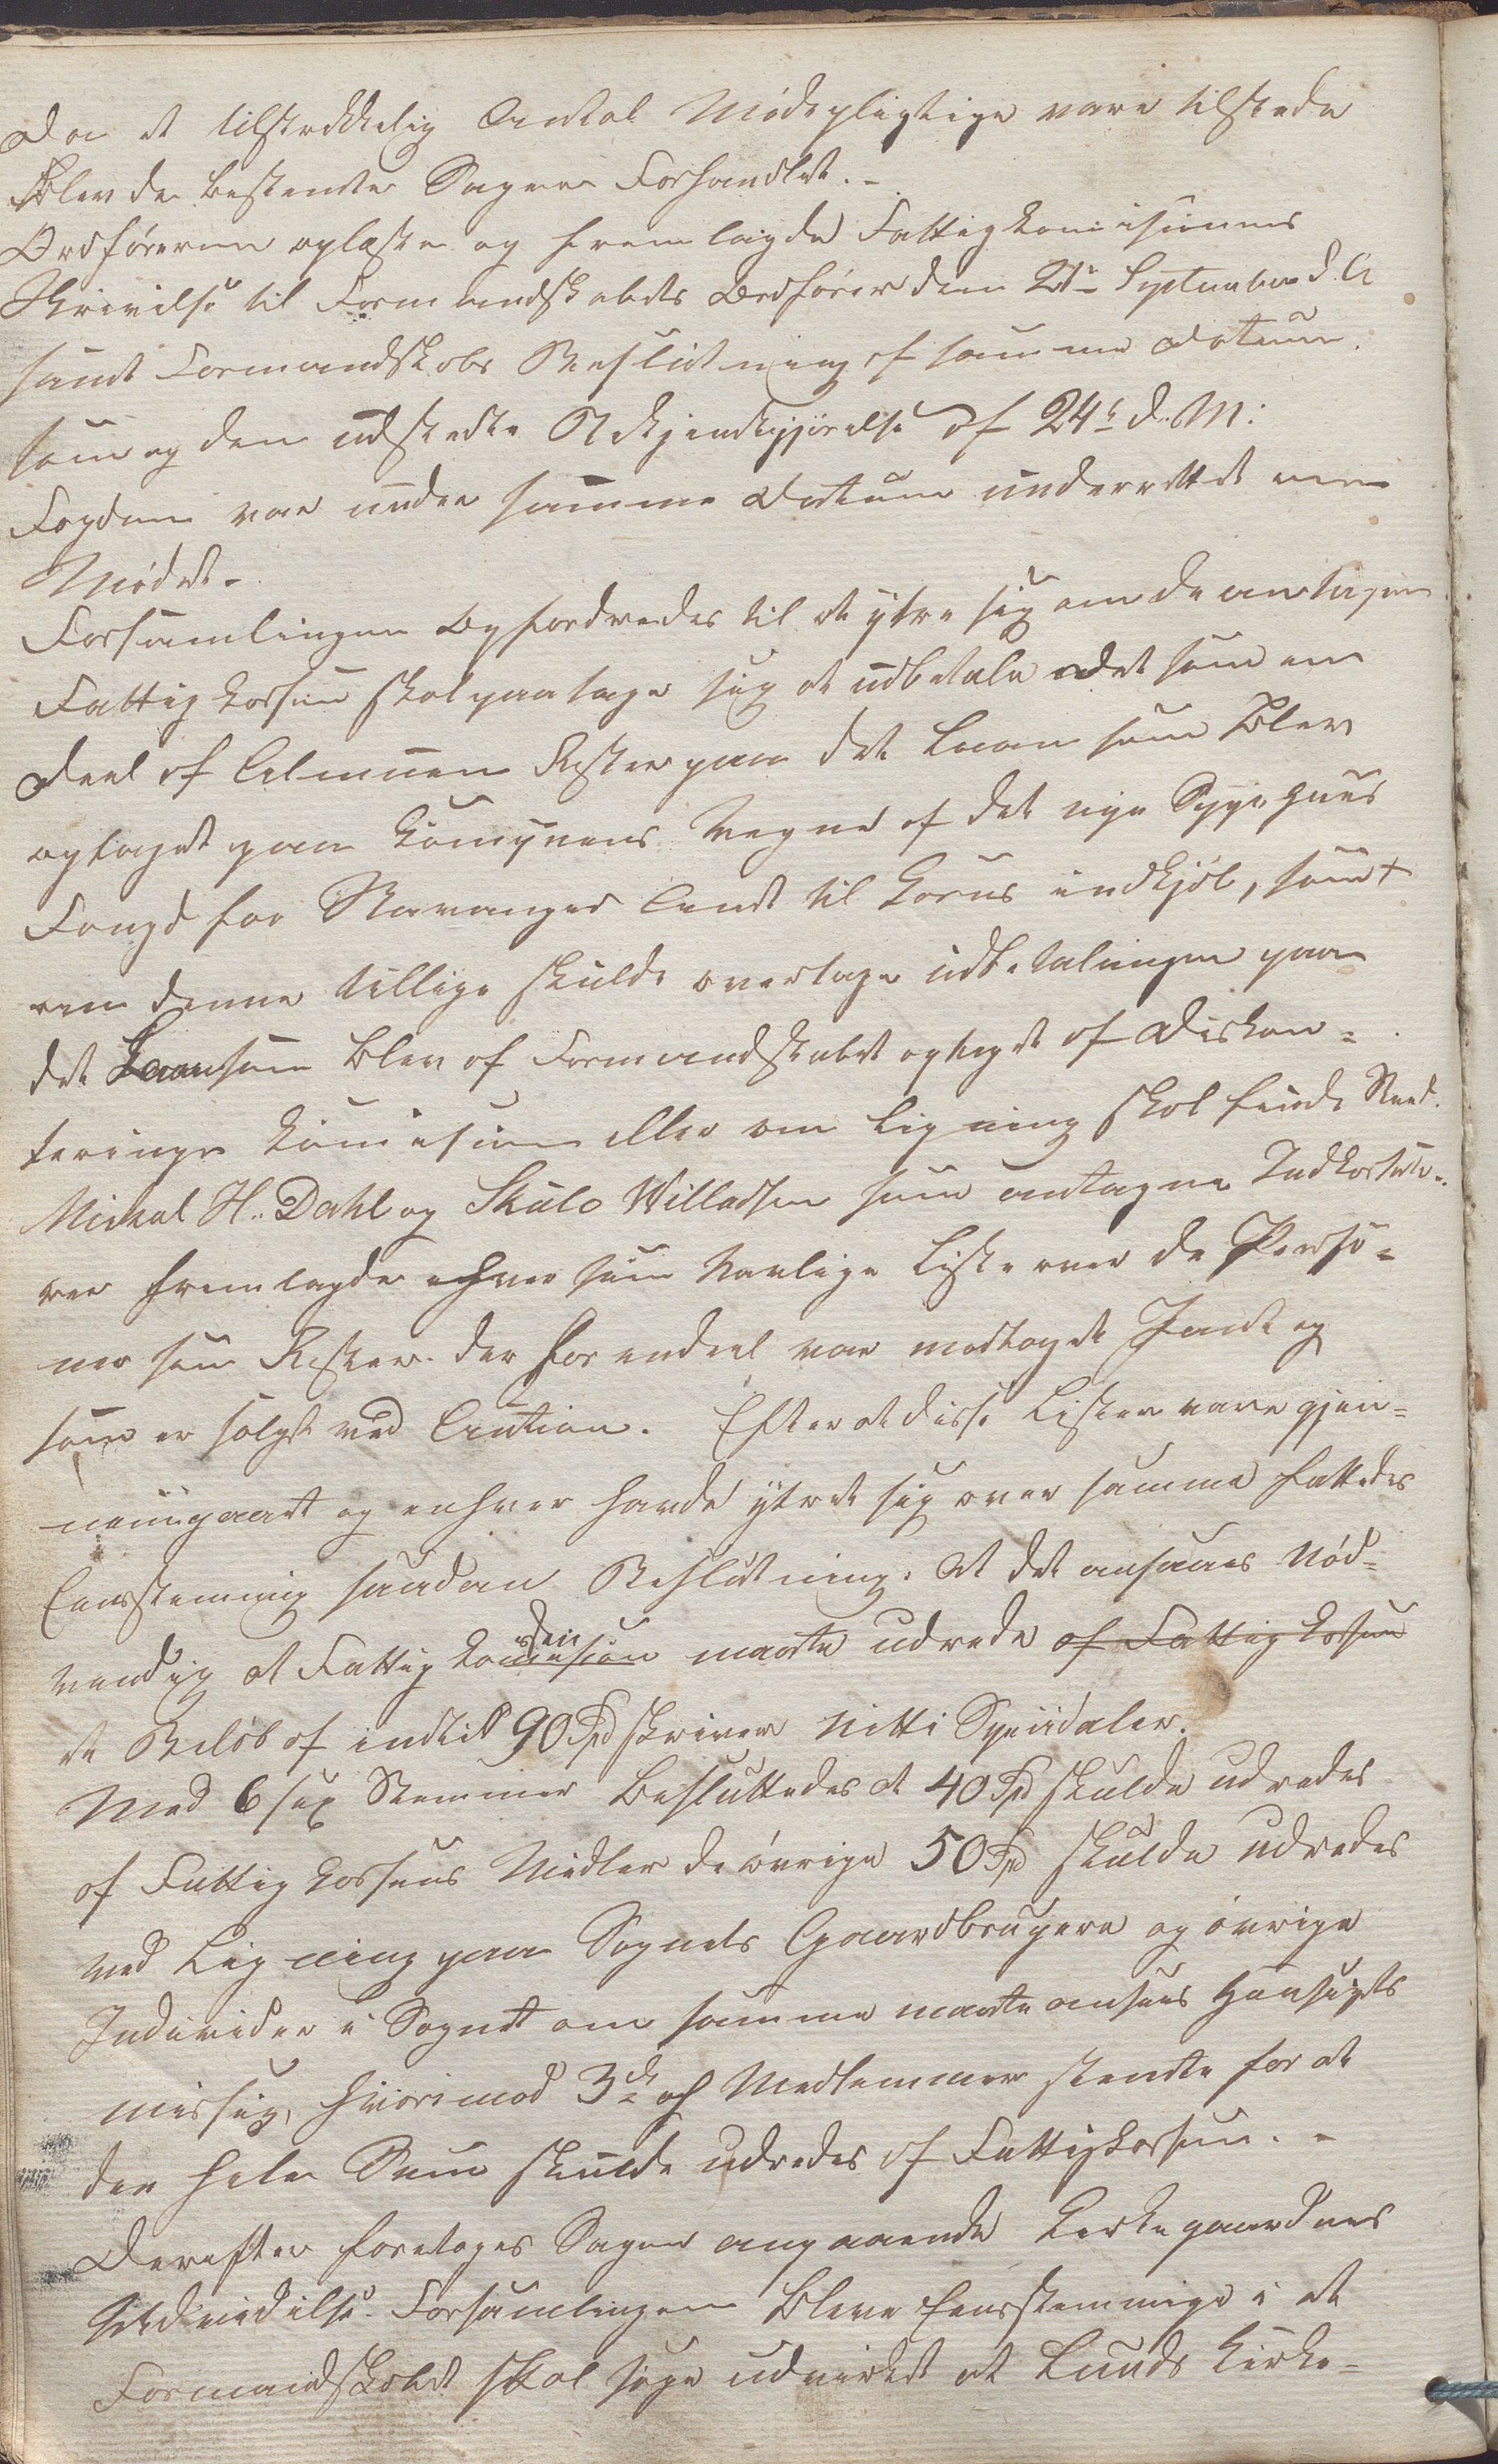 Da et tilstrekkelig Antal Mødepligtige vare tilstede
Blev de bestemte Sager Forhandlet. -
Ordføreren oplæste og fremlagde Fattigkomisionens
Skrivelse til Formandskabets Ordfører dem 21de September d. A
samt Formandskabs Beslutning af samme Datum.
som og den udstedte Bekjendtgjørelse af 24de d. M:
Fogden var under samme Datum underrettet om
Mødet -
Forsamlingen Opfordredes til at ytre sig om de antagen
Fattigkassen skal paatage sig at udbetale Det som en
Deel af Almuen Rester paa det Laan som Blev
optaget paa Komunens Vegne af det nye Sygehuus
Fongd for Stavanger Amt til Korns indkjøb, samt
om denne tillige skulde overtage udbetalingen paa
det Laan som Blev af Formandskabet optaget af Diskon=
terings Komisionen eller om Ligning skal finde Sted.
Mikal H. Dahl og Skule Willadsen som antagne Indkassere..
rer fremlagde enhver sin Navlige Liste over de Perso=
ner som Rester. der for endeel var modtaget Pant og
som er solgt ved Aution. Efter at disse Lister vare gjen=
nemgaaet og enhver havde ytret sig over samme fattedes
Eensstemmig saadan Beslutning. At det ansaaes Nød=
vendig at Fattig Komisionen maatte udrede af Fattigkassen
et Beløb af indtil 90 Spd skriver Nitti Spesidaler.
Med 6 sex Stemmer Besluttedes at 40 Spd skulde udredes
af Fattigkassens Midler de øvrige 50 Spd skulde udredes
ved Ligning paa Sognets Gaardbrugere og øvrige
Individer i Sognet om samme maatte ansees Hensigts
messig, hvorimod 3de af Medlemmer stemte for at
den hele Sum skulde udredes af Fattigkassen. -
Derefter foretoges Sagen angaaende Kirkegaardnes
Udvidelse. Forsamlingen Bleve Eensstemmige i at
Formandskabet skal søge udvirket at Lunds Kirke=